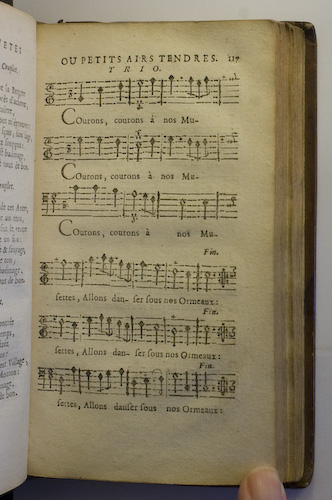 OU PETITS AIRS TENDRES. 117
TRIO.
Courons, courons à nos Mu-
Courons, courons à nos Mu-
Courons, courons à nos Mu-
Fin.
settes, Allons dan- ser sous nos Ormeaux:
Fin.
settes, Allons dan- ser sous nos Ormeaux:
Fin.
settes, Allons danser sous nos Ormeaux: